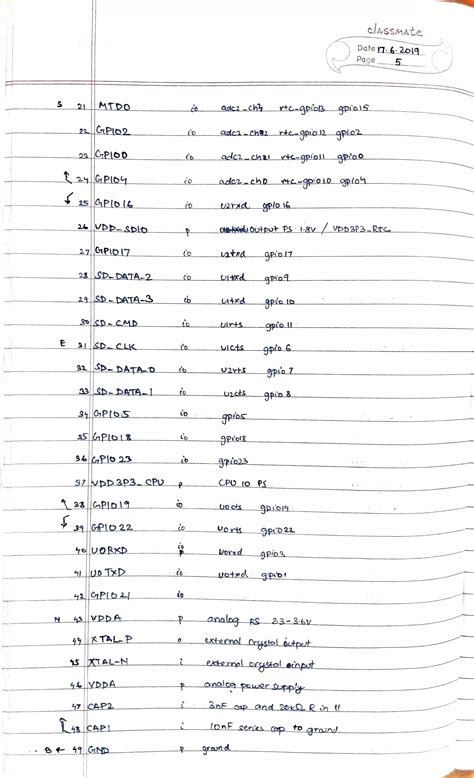 classmate
Date 17.6.2019
Page 5
S 21 MTDO io adc2_ch3 rtc-gpio13 gpio15
22 GPIO2 io adc2_ch2 rtc-gpio12 gpio2
23 GPIO0 io adc2_ch1 rtc-gpio11 gpio0
24 GPIO4 io adc2_ch0 rtc-gpio10 gpio4
25 GPIO16 io u2rxd gpio16
26 VDD_SDIO p output PS 1.8V / VDD3P3_RTC
27 GPIO17 io u2txd gpio17
28 SD_DATA_2 io u1txd gpio9
29 SD_DATA_3 io u1txd gpio10
30 SD_CMD io u1rts gpio11
E 31 SD_CLK io u1cts gpio6
32 SD_DATA_0 io u2rts gpio7
33 SD_DATA_1 io u2cts gpio8
34 GPIO5 io gpio5
35 GPIO18 io gpio18
36 GPIO23 io gpio23
37 VDD3P3_CPU p CPU IO PS
38 GPIO19 io u0cts gpio19
39 GPIO22 io u0rts gpio22
40 U0RXD io u0rxd gpio3
41 U0TXD io u0txd gpio1
42 GPIO21 io
N 43 VDDA p analog PS 2.3-3.6V
44 XTAL_P o external crystal output
45 XTAL_N i external crystal input
46 VDDA p analog power supply
47 CAP2 i 3nF cap and 20kΩ R in 11
48 CAP1 i 10nF series cap to ground
B 49 GND p ground